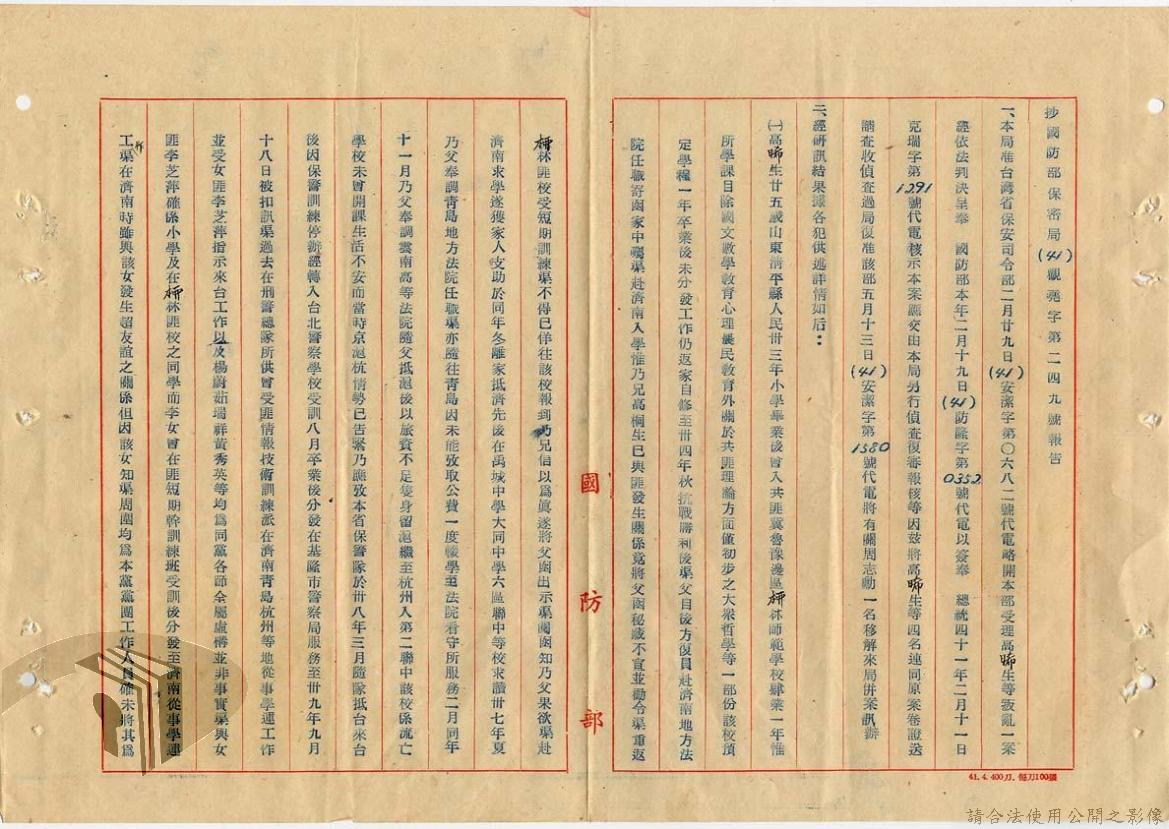 抄國防部保密局(41)觀堯字第二四九號報告
一、本局准台灣省保安司令部二月廿九日(41)安潔字第〇六八二號代電略開本部受理高晞生等叛亂一案
經依法判決呈奉　國防部本年二月十九日(41)防隆字第0352號代電以簽奉　總統四十一年二月十一日
克瑞字第1291號代電核示本案應交由本局另行偵查復審報核等因茲將高晞生等四名連同原案卷證送
請查收偵查過局復准該部五月十三日(41)安潔字第1580號代電將有關周志勳一名移解來局併案訊辦
二、經研訊結果據各犯供述詳情如后：
㈠高晞生廿五歲山東清平縣人民卅三年小學畢業後曾入共匪冀魯豫邊區柳林師範學校肄業一年惟
所學課目除國文數學教育心理農民教育外關於共匪理論方面僅初步之大眾哲學等一部份該校預
定學程一年卒業後未分發工作仍返家自修至卅四年秋抗戰勝利後渠父自後方復員赴濟南地方法
院任職寄函家中囑渠赴濟南入學惟乃兄高桐生已與匪發生關係竟將父函秘藏不宣並勸令渠重返
柳林匪校受短期訓練渠不得已佯往該校報到乃兄信以為眞遂將父函出示渠閱函知乃父果欲渠赴
濟南求學遂獲家人支助於同年冬離家抵濟先後在禹城中學大同中學六區聯中等校求讀卅七年夏
乃父奉調青島地方法院任職渠亦隨往青島因未能攷取公費一度輟學至法院看守所服務二月同年
十一月乃父奉調雲南高等法院隨父抵滬後以旅資不足隻身留滬繼至杭州入第二聯中該校係流亡
學校未曾開課生活不安而當時京滬杭情勢已告緊乃應攷本省保警隊於卅八年三月隨隊抵台來台
後因保警訓練停辦經轉入台北警察學校受訓八月卒業後分發在基隆市警察局服務至卅九年九月
十八日被扣訊渠過去在刑警總隊所供曾受匪情報技術訓練派在濟南青島杭州等地從事學運工作
並受女匪李芝萍指示來台工作以及楊蔚茹瑞祥黃秀英等均為同黨各節全屬虛構並非事實渠與女
匪李芝萍確係小學及在柳林匪校之同學而李女曾在匪短期幹訓練班受訓後分發至濟南從事學運
工作渠在濟南時雖與該女發生超友誼之關係但因該女知渠周圍均為本黨黨團工作人員確未將其為
國防部
41.4.400刀.每刀100張
請合法使用公開之影像